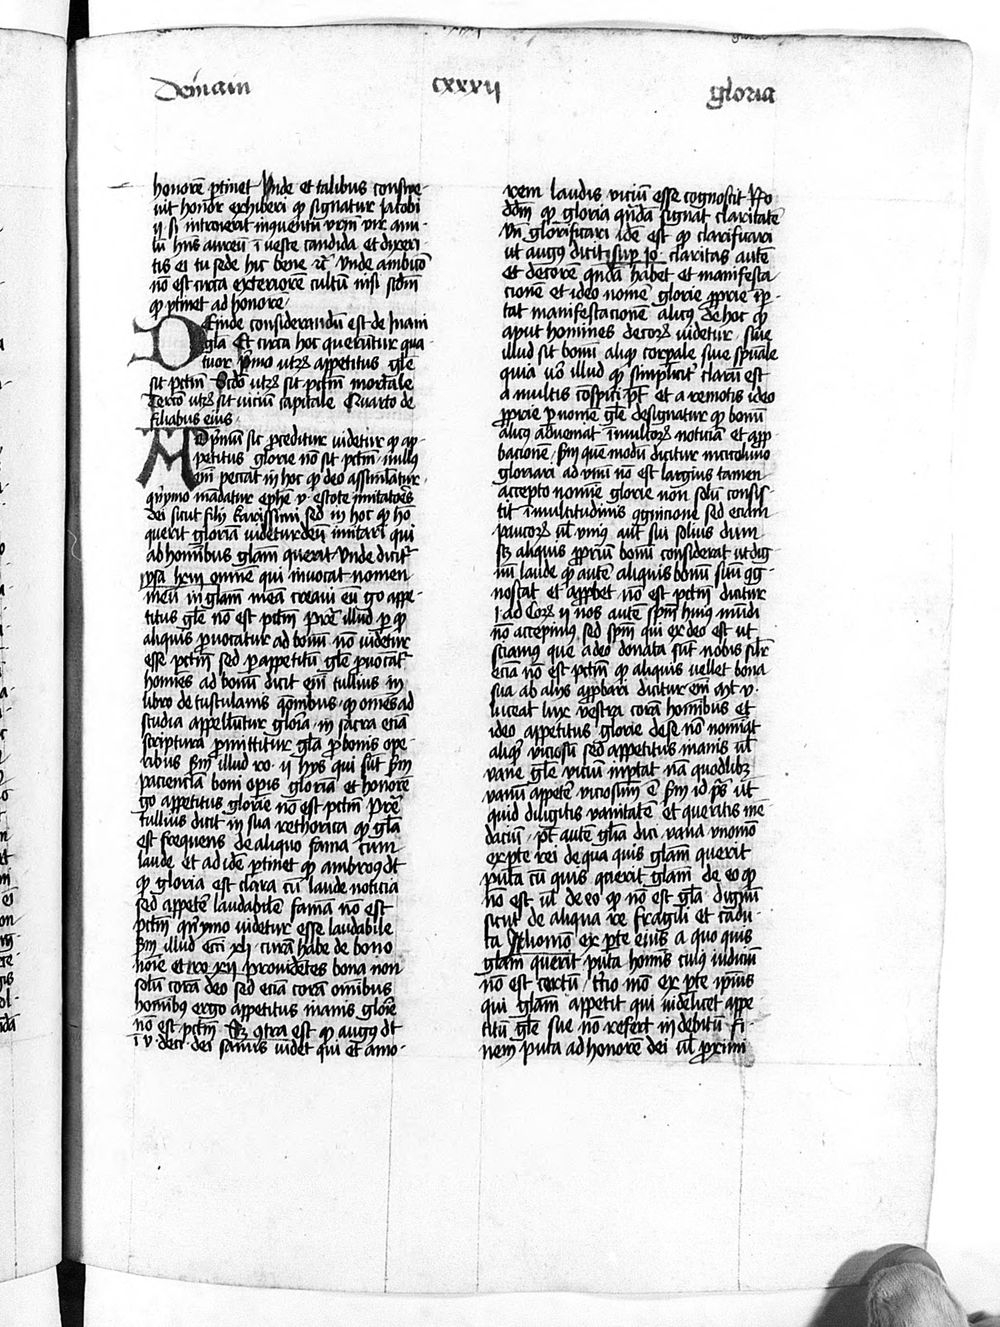 De inani
cxxxii
gloria
honorē ꝑtinet Vnde et talibus consue-
uit honor exhiberi ꝙ signatur Iacobi
ii. si introierit inquentū vrm̄ vir anu-
lū hn̄s aureū ī veste candida et dixeri-
tis ei tu sede hic bene ⁊c̄ Vnde ambico
nō est circa exteriorē cultū nisi scd̄m
ꝙ ꝑtinet ad honore/
DEinde considerandū est de Inani
gl̄a Et circa hoc queruntur qua-
tuor Pͥmo utꝝ appetitus gl̄e
sit pctm̄ Scd̄o utꝝ sit pctm̄ mortale
Tercō utꝝ sit viciū capitale Quarto de
filiabus eius
AD pͥmū sic proceditur videtur ꝙ ap-
petitus glorie nō sit pctm̄ nullus
em̄ peccat in hoc ꝙ deo assimilatur
qn̄ymo mādatur ephe v. estote imitatoēs
dei sicut filij karissimi sed in hoc ꝙ hō
querit gloriā videtur deū imitari qui
ab hominibus glam̄ querit Vnde dicit
ysa xliij omnē qui inuocat nomen
meū in glam̄ meā creaui eū g̊o appe-
titus gl̄e nō est pctm̄ Preͤ illud ꝑ ꝙ
aliquis prouocatur ad bonū nō videtur
esse pctm̄ sed ꝑ appetitū gl̄e prouocāt
homīes ad bonū dicit em̄ tullius in
libro de tusculanis qōnibus ꝙ omēs ad
studia appellūtur gloīa in sacra eciā
scriptura promittitur gl̄a ꝓ bonis ope-
ribus scd̄m illud ro. ii hijs qui sūt scd̄m
pacienciā boni opīs gloriā et honorē
g̊o appetitus glorie nō est pctm̄ Preͤ
tullius dicit in sua rethorica ꝙ gl̄a
est frequens de aliquo fama cum
laude et ad idē ꝑtinet ꝙ ambroꝰ dt
ꝙ gloria est clara cū laude noticia
sed appetē laudabilē famā nō est
pctm̄ qn̄ymo videtur esse laudabile
scd̄m illud ecc̄i xlj curā habe de bono
noīe et ro xij prouidētes bona non
solū corā deo sed eciā corā omībus
homībꝰ ergo appetitus inanis gloīe
nō est pctm̄ Sꝫ ꝯtra est ꝙ augꝰ dt
ī v. de ci. dei sanius videt qui et amo-
rem laudis viciū esse cognoscit Rn̄
dd̄m ꝙ gloria qn̄dā signat claritatē
Vn̄ glorificari idē est ꝙ clarificari
ut augꝰ dicit sup Io. claritas autē
et decorē qn̄dā habet et manifesta-
cionē et ideo nomē glorie ꝓprie īpor-
tat manifestacionē alicꝰ de hoc ꝙ
aput homines decorū videtur siue
illud sit bonū aliꝙ corpale siue spūale
quia vͦo illud ꝙ simplicit̄ clarū est
a multis cōspici pōt et a remotis ideo
ꝓprie ꝑ nomē gl̄e designatur ꝙ bonū
alicꝰ adueniat ī multoꝝ noticiā et appro-
bacionē scd̄m quē modū dicitur in tito liuio
gloriari ad vnū nō est largius tamen
accepto nomine glorie non solū consis-
tit ī multitudinis ꝯgnicione sed eciam
paucoꝝ ul̄ vniꝰ aut sui solius dum
sꝫ aliquis ꝓpriū bonū considerat ut dig-
nū laude ꝙ autē aliquis bonū suū ꝯg-
noscat et approbet nō est pctm̄ dicitur
I ad Coꝝ ii nos autē spm̄ huiꝰ mūdi
nō accepimus sed spm̄ qui ex deo est ut
sciamus que a deo donata sūt nobis sil̄r
eciā nō est pctm̄ ꝙ aliquis vellet bona
sua ab alijs approbari dicitur em̄ mt v.
luceat lux vestra corā homībus et
ideo appetitus glorie de se nō nomīat
aliꝙ viciosū sed appetitus inanis ul̄
vane gl̄e viciū importat nā quodlibꝫ
vanū appetē viciosum ē scd̄m id ps̄ ut
quid diligitis vanitatē et queritis mē-
daciū/ pōt autē gl̄ia dici vana vnomō
ex ꝑte rei de qua quis glam̄ querit
puta cū quis querit glam̄ de eo ꝙ
nō est ul̄ de eo ꝙ nō est gl̄a dignū
sicut de aliqua re fragili et cadu-
ca Aliomō ex ꝑte eius a quo quis
glam̄ querit puta homis cuiꝰ iudiciū
nō est certū/ t̄cio mō ex ꝑte ip̄ius
qui glam̄ appetit qui videlicet appe-
titū gl̄e sue nō refert in debitū fi-
nem puta ad honorē dei ul̄ proximi